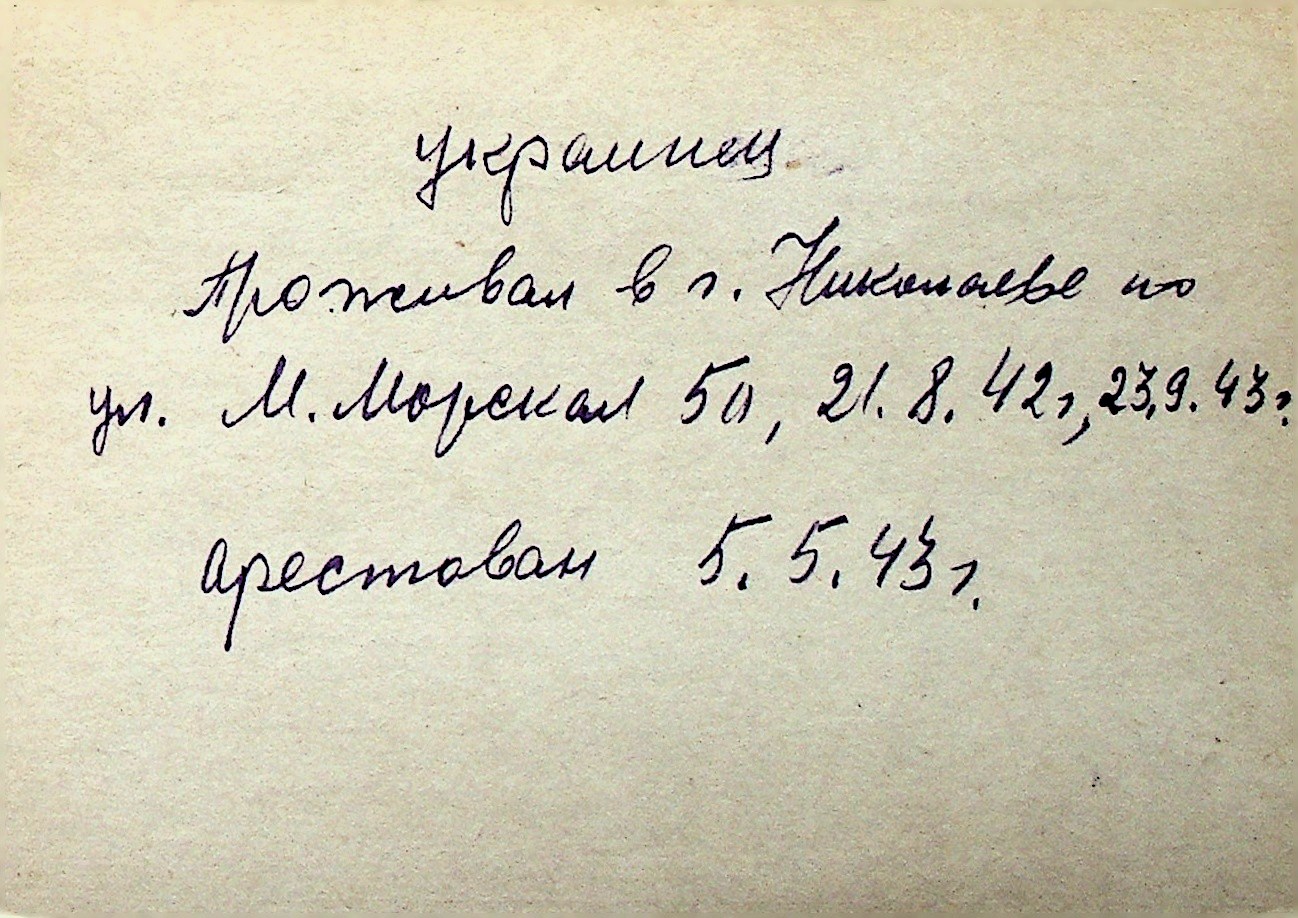 украинец
Проживал в г. Николаеве по
ул. М. Морская 5а, 21.8.42г, 23.9.43г.
арестован 5.5.43г.